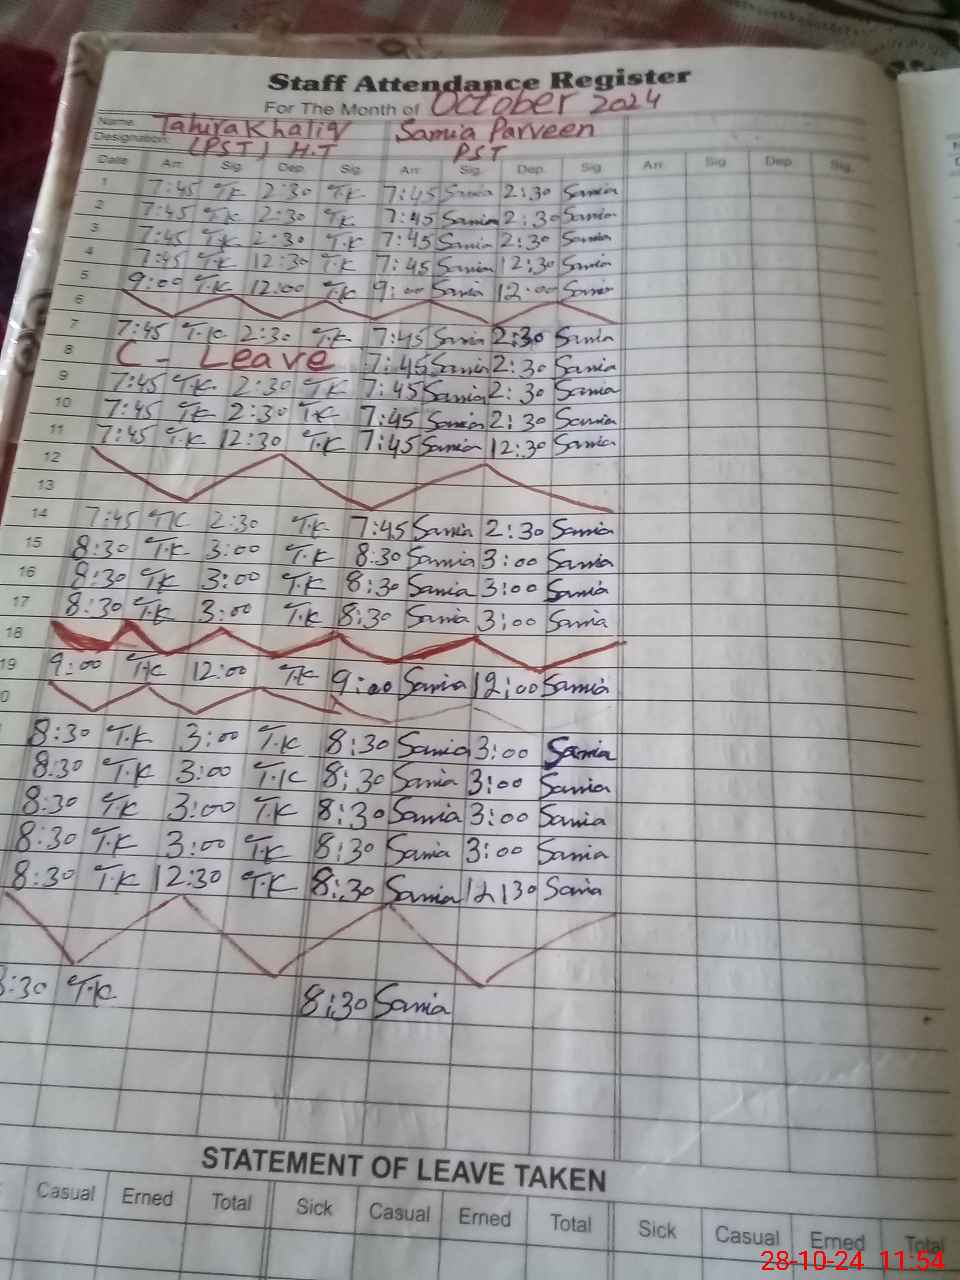 Staff Attendance Register
For The Month of October 2024
Name: Tahira Khaliq Samia Parveen
Designation: (PST) H.T PST
Date Arr. Sig. Dep. Sig. Arr. Sig. Dep. Sig. Arr. Sig. Dep. Sig.
1 7:45 T.K 2:30 T.K 7:45 Samia 2:30 Samia
2 7:45 T.K 2:30 T.K 7:45 Samia 2:30 Samia
3 7:45 T.K 2:30 T.K 7:45 Samia 2:30 Samia
4 7:45 T.K 12:30 T.K 7:45 Samia 12:30 Samia
5 9:00 T.K 12:00 T.K 9:00 Samia 12:00 Samia
6
7 7:45 T.K 2:30 T.K 7:45 Samia 2:30 Samia
8 C - Leave 7:45 Samia 2:30 Samia
9 7:45 T.K 2:30 T.K 7:45 Samia 2:30 Samia
10 7:45 T.K 2:30 T.K 7:45 Samia 2:30 Samia
11 7:45 T.K 12:30 T.K 7:45 Samia 12:30 Samia
12
13
14 7:45 T.K 2:30 T.K 7:45 Samia 2:30 Samia
15 8:30 T.K 3:00 T.K 8:30 Samia 3:00 Samia
16 8:30 T.K 3:00 T.K 8:30 Samia 3:00 Samia
17 8:30 T.K 3:00 T.K 8:30 Samia 3:00 Samia
18
19 9:00 T.K 12:00 T.K 9:00 Samia 12:00 Samia
0
8:30 T.K 3:00 T.K 8:30 Samia 3:00 Samia
8:30 T.K 3:00 T.K 8:30 Samia 3:00 Samia
8:30 T.K 3:00 T.K 8:30 Samia 3:00 Samia
8:30 T.K 3:00 T.K 8:30 Samia 3:00 Samia
8:30 T.K 12:30 T.K 8:30 Samia 12:30 Samia
8:30 T.K 8:30 Samia
STATEMENT OF LEAVE TAKEN
Casual Erned Total Sick Casual Erned Total Sick Casual Erned Total
28-10-24 11:54